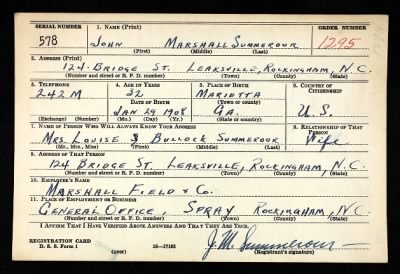 SERIAL NUMBER 1. NAME (Print) ORDER NUMBER
578 JOHN MARSHALL SUMMEROUR 1295
(First) (Middle) (Last)
2. ADDRESS (Print)
124 BRIDGE ST. LEAKSVILLE, ROCKINGHAM, N.C.
(Number and street or R. F. D. number) (Town) (County) (State)
3. TELEPHONE 4. AGE IN YEARS 5. PLACE OF BIRTH 6. COUNTRY OF CITIZENSHIP
242M 32 MARIETTA
DATE OF BIRTH (Town or county)
JAN 29 1908 GA. U.S.
(Exchange) (Number) (Mo.) (Day) (Yr.) (State or country)
7. NAME OF PERSON WHO WILL ALWAYS KNOW YOUR ADDRESS 8. RELATIONSHIP OF THAT PERSON
MRS LOUISE BULLOCK SUMMEROUR WIFE
(Mr., Mrs., Miss) (First) (Middle) (Last)
9. ADDRESS OF THAT PERSON
124 BRIDGE ST. LEAKSVILLE, ROCKINGHAM, N.C.
(Number and street or R. F. D. number) (Town) (County) (State)
10. EMPLOYER'S NAME
MARSHALL FIELD & CO.
11. PLACE OF EMPLOYMENT OR BUSINESS
GENERAL OFFICE, SPRAY ROCKINGHAM, N.C
(Number and street or R. F. D. number) (Town) (County) (State)
I AFFIRM THAT I HAVE VERIFIED ABOVE ANSWERS AND THAT THEY ARE TRUE.
REGISTRATION CARD J.M. Summerour
D. S. S. Form 1 (over) 16—17105 (Registrant's signature)